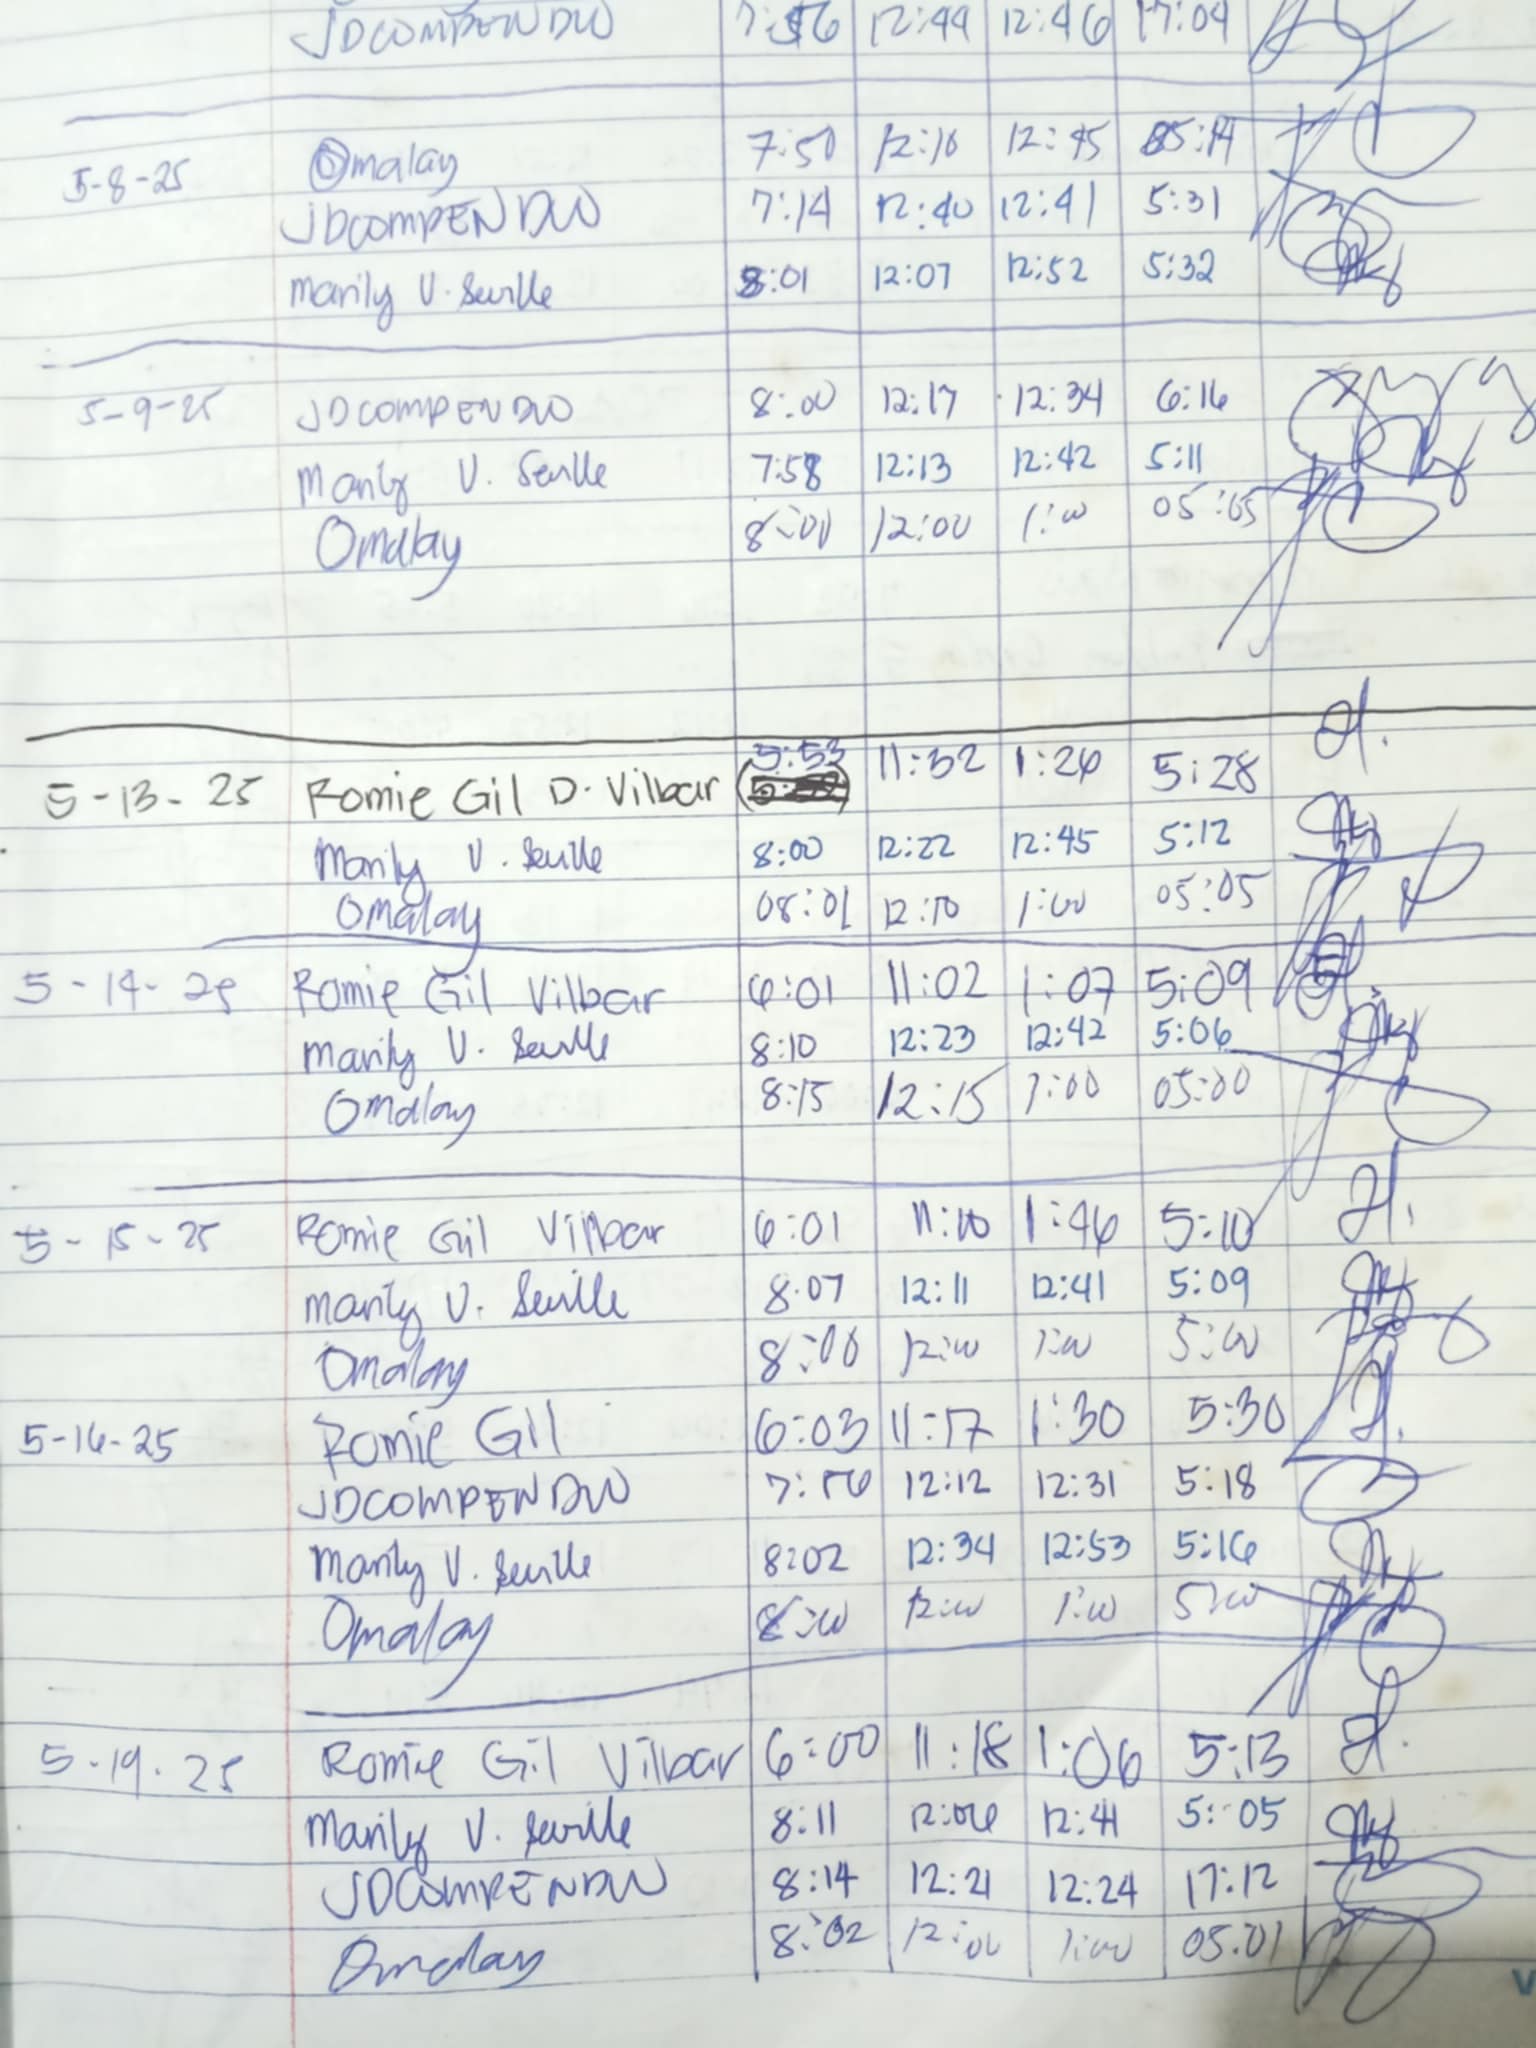 JDCOMPENDIO 7:56 12:44 12:46 17:04
5-8-25 Omalay 7:50 12:10 12:45 05:14
JDCOMPENDIO 7:14 12:40 12:41 5:31
Marily V. Seville 8:01 12:07 12:52 5:32
5-9-25 JDCOMPENDIO 8:00 12:17 12:34 6:16
Marily V. Seville 7:58 12:13 12:42 5:11
Omalay 8:00 12:00 1:00 05:05
5-13-25 Romie Gil D. Vilbar 5:53 11:32 1:26 5:28
Marily V. Seville 8:00 12:22 12:45 5:12
Omalay 08:01 12:10 1:00 05:05
5-14-25 Romie Gil Vilbar 6:01 11:02 1:07 5:09
Marily V. Seville 8:10 12:23 12:42 5:06
Omalay 8:15 12:15 1:00 05:00
5-15-25 Romie Gil Vilbar 6:01 11:10 1:46 5:10
Marily V. Seville 8:07 12:11 12:41 5:09
Omalay 8:00 12:00 1:00 5:00
5-16-25 Romie Gil 6:03 11:17 1:30 5:30
JDCOMPENDIO 7:56 12:12 12:31 5:18
Marily V. Seville 8:02 12:34 12:53 5:16
Omalay 8:00 12:00 1:00 5:00
5-19-25 Romie Gil Vilbar 6:00 11:18 1:06 5:13
Marily V. Seville 8:11 12:06 12:41 5:05
JDCOMPENDIO 8:14 12:21 12:24 17:12
Omalay 8:02 12:00 1:00 05:01